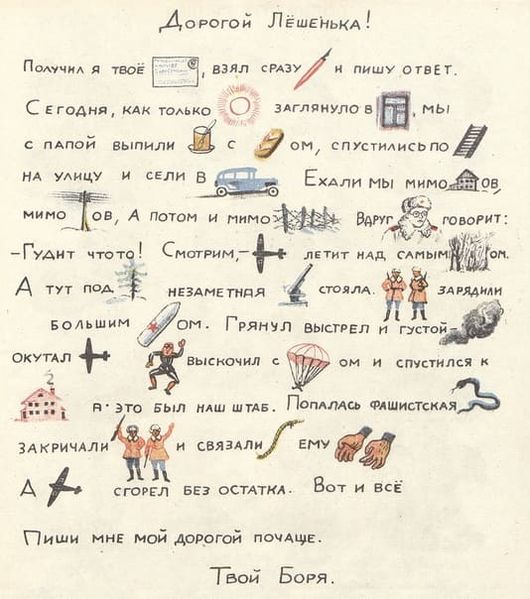 Дорогой Лёшенька!
Получил я твоё , взял сразу и пишу ответ.
Сегодня, как только заглянуло в , мы
с папой выпили с ом, спустились по
на улицу и сели в Ехали мы мимо ов,
мимо ов, а потом и мимо Вдруг говорит:
–Гудит чтото! Смотрим,– летит над самым ом.
А тут под незаметная стояла. зарядили
большим ом. Грянул выстрел и густой
окутал выскочил с ом и спустился к
а это был наш штаб. Попалась фашистская
закричали и связали ему
А сгорел без остатка. Вот и всё
Пиши мне мой дорогой почаще.
Твой Боря.